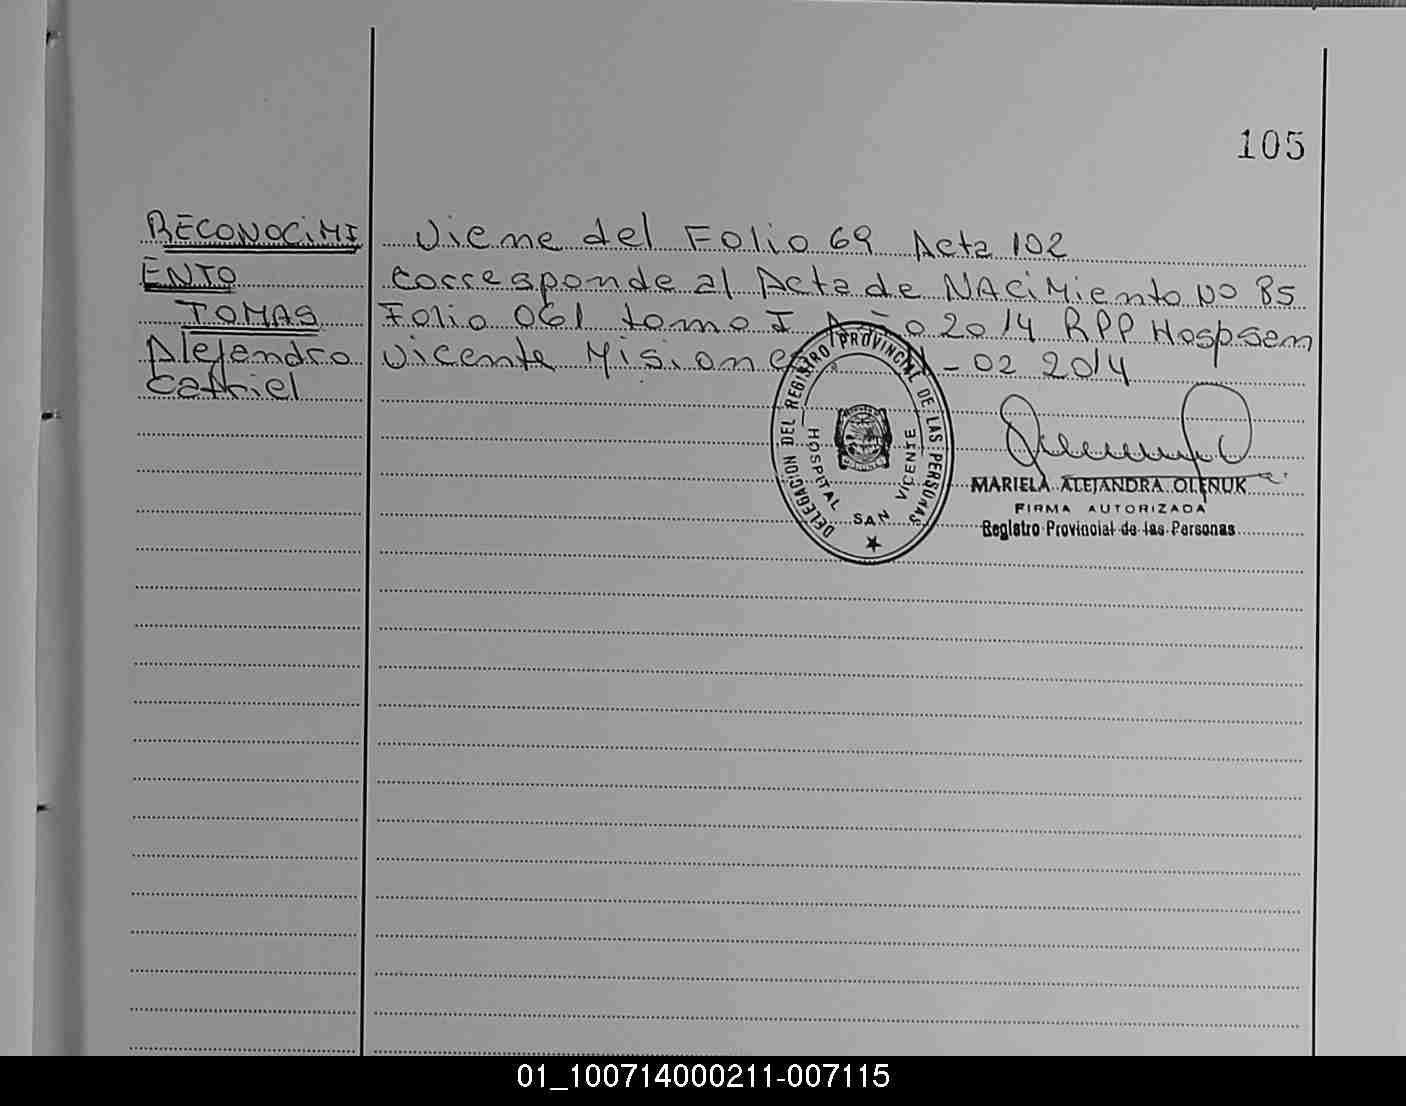 105
RECONOCIMI
ENTO
TOMAS
Alejandro
Catriel
Viene del Folio 69 Acta 102
corresponde al Acta de NACiMiento No 85
Folio 061 tomo I Año 2014 RPP Hosp sam
Vicente Misiones - 02 2014
DELEGACION DEL REGISTRO PROVINCIAL DE LAS PERSONAS
HOSPITAL SAN VICENTE
MARIELA ALEJANDRA OLENUK
FIRMA AUTORIZADA
Registro Provincial de las Personas
01_100714000211-007115